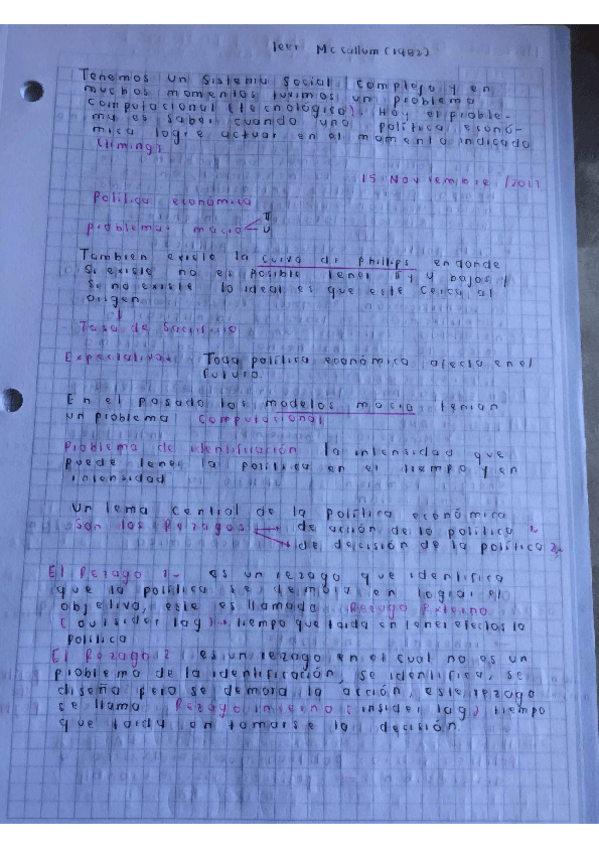 leer Mc Callum (1982)
Tenemos un sistema social complejo y en
muchos momentos tuvimos un problema
computacional (tecnológico). Hoy el proble-
ma es saber cuando una política econó-
mica logre actuar en el momento indicado
(timing)
15 Noviembre /2017
Política económica
problema: macro π
u
Tambien existe la curva de phillips en donde
Si existe no es posible tener y bajos
Si no existe lo ideal es que este cerca al
origen
Tasa de Sacrificio
Expectativas Toda política económica afecta en el
futuro.
En el pasado los modelos macro tenian
un problema computacional
Problema de identificación la intensidad que
puede tener la politica en el tiempo y en
intensidad
Un tema central de la política económica
son los Rezagos de acción de la política 1.
de decisión de la política 2.
El Rezago 1- es un rezago que identifica
que la política se demora en lograr el
objetivo, este es llamado Rezago Externo
(outsider lag) tiempo que tarda en tener efectos la
política
El Rezago 2 es un rezago en el cual no es un
problema de la identificación, se identifica, se
diseña pero se demora la acción, este rezago
se llama Rezago interno (insider lag) tiempo
que tarda en tomarse la decisión.